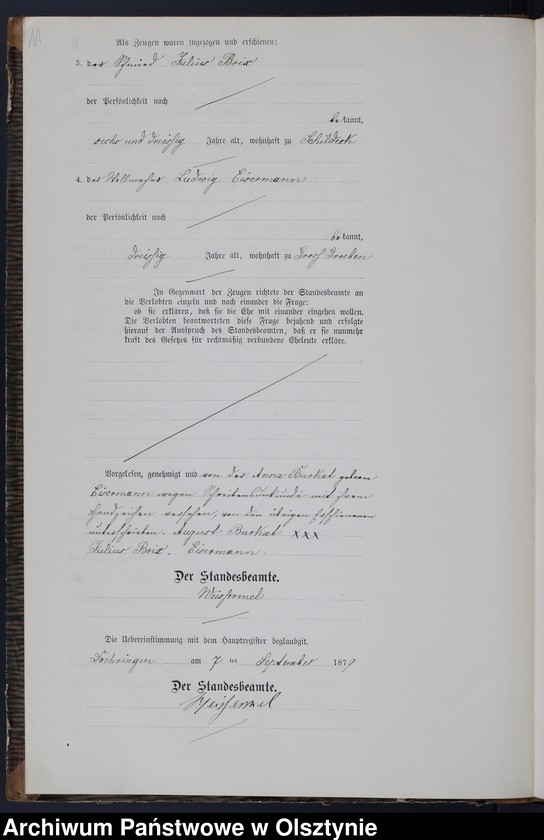 11
Als Zeugen waren zugezogen und erschienen:
3. der Schmied Julius Brix
der Persönlichkeit nach
bekannt,
sechs und dreißig Jahre alt, wohnhaft zu Schildeck
4. der Stellmacher Ludwig Eisermann
der Persönlichkeit nach
bekannt,
dreißig Jahre alt, wohnhaft zu Groß Groeben
In Gegenwart der Zeugen richtete der Standesbeamte an
die Verlobten einzeln und nach einander die Frage:
ob sie erklären, daß sie die Ehe mit einander eingehen wollen.
Die Verlobten beantworteten diese Frage bejahend und erfolgte
hierauf der Ausspruch des Standesbeamten, daß er sie nunmehr
kraft des Gesetzes für rechtmäßig verbundene Eheleute erkläre.
Vorgelesen, genehmigt und von der Anna Burkat geborene
Eisermann wegen Schreibensunkunde mit ihrem
Handzeichen versehen, von den übrigen Erschienenen
unterschrieben. August Burkat. XXX
Julius Brix. Eisermann.
Der Standesbeamte.
Weissermel
Die Uebereinstimmung mit dem Hauptregister beglaubigt.
Doehringen am 7 ten September 1879
Der Standesbeamte.
Weissermel
Archiwum Państwowe w Olsztynie